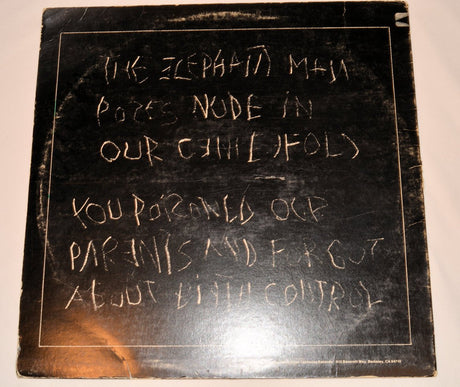 THE ELEPHANT MAN
POSES NUDE IN
OUR CENTERFOLD
YOU POISONED OUR
PARENTS AND FORGOT
ABOUT BIRTH CONTROL
Berkeley, CA 94710